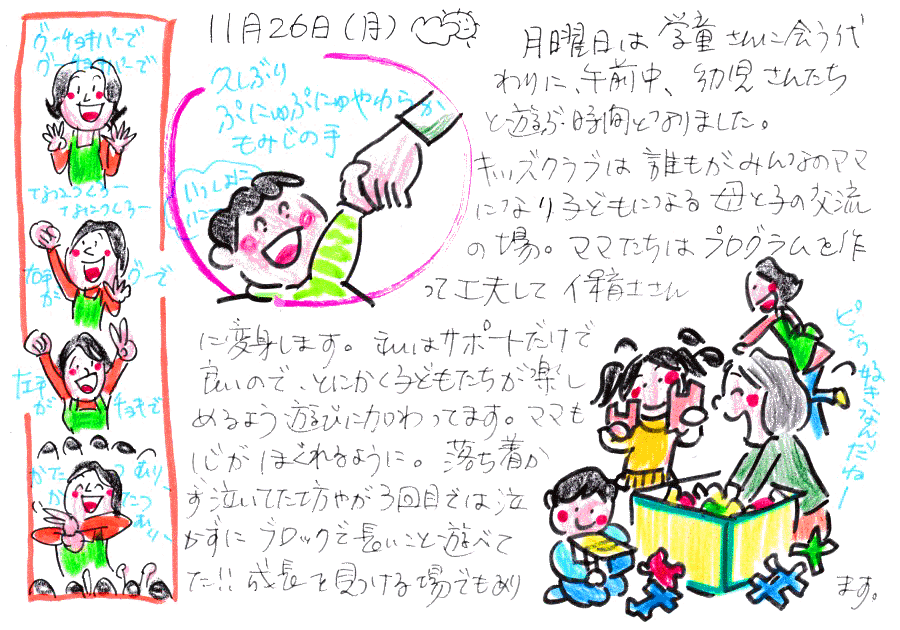 11月26日(月)
グーチョキパーで
グーチョキパーで
なにつくろー
なにつくろー
右手が
グーで
左手が
チョキで
かたつむり
かたつむりー
久しぶり
ぷにゅぷにゅやわらか
もみじの手
いっしょに
月曜日は学童さんに会う代
わりに、午前中、幼児さんたち
と遊ぶ時間となりました。
キッズクラブは誰もがみんなのママ
になり子どもになる母と子の交流
の場。ママたちはプログラムを作
って工夫して保育士さん
に変身します。私はサポートだけで
良いので、とにかく子どもたちが楽し
めるよう遊びに加わってます。ママも
心がほぐれるように。落ち着か
ず泣いてた坊やが3回目では泣
かずにブロックで長いこと遊べて
た!!成長を見つける場でもあり
ます。
ピンク好きなんだねー